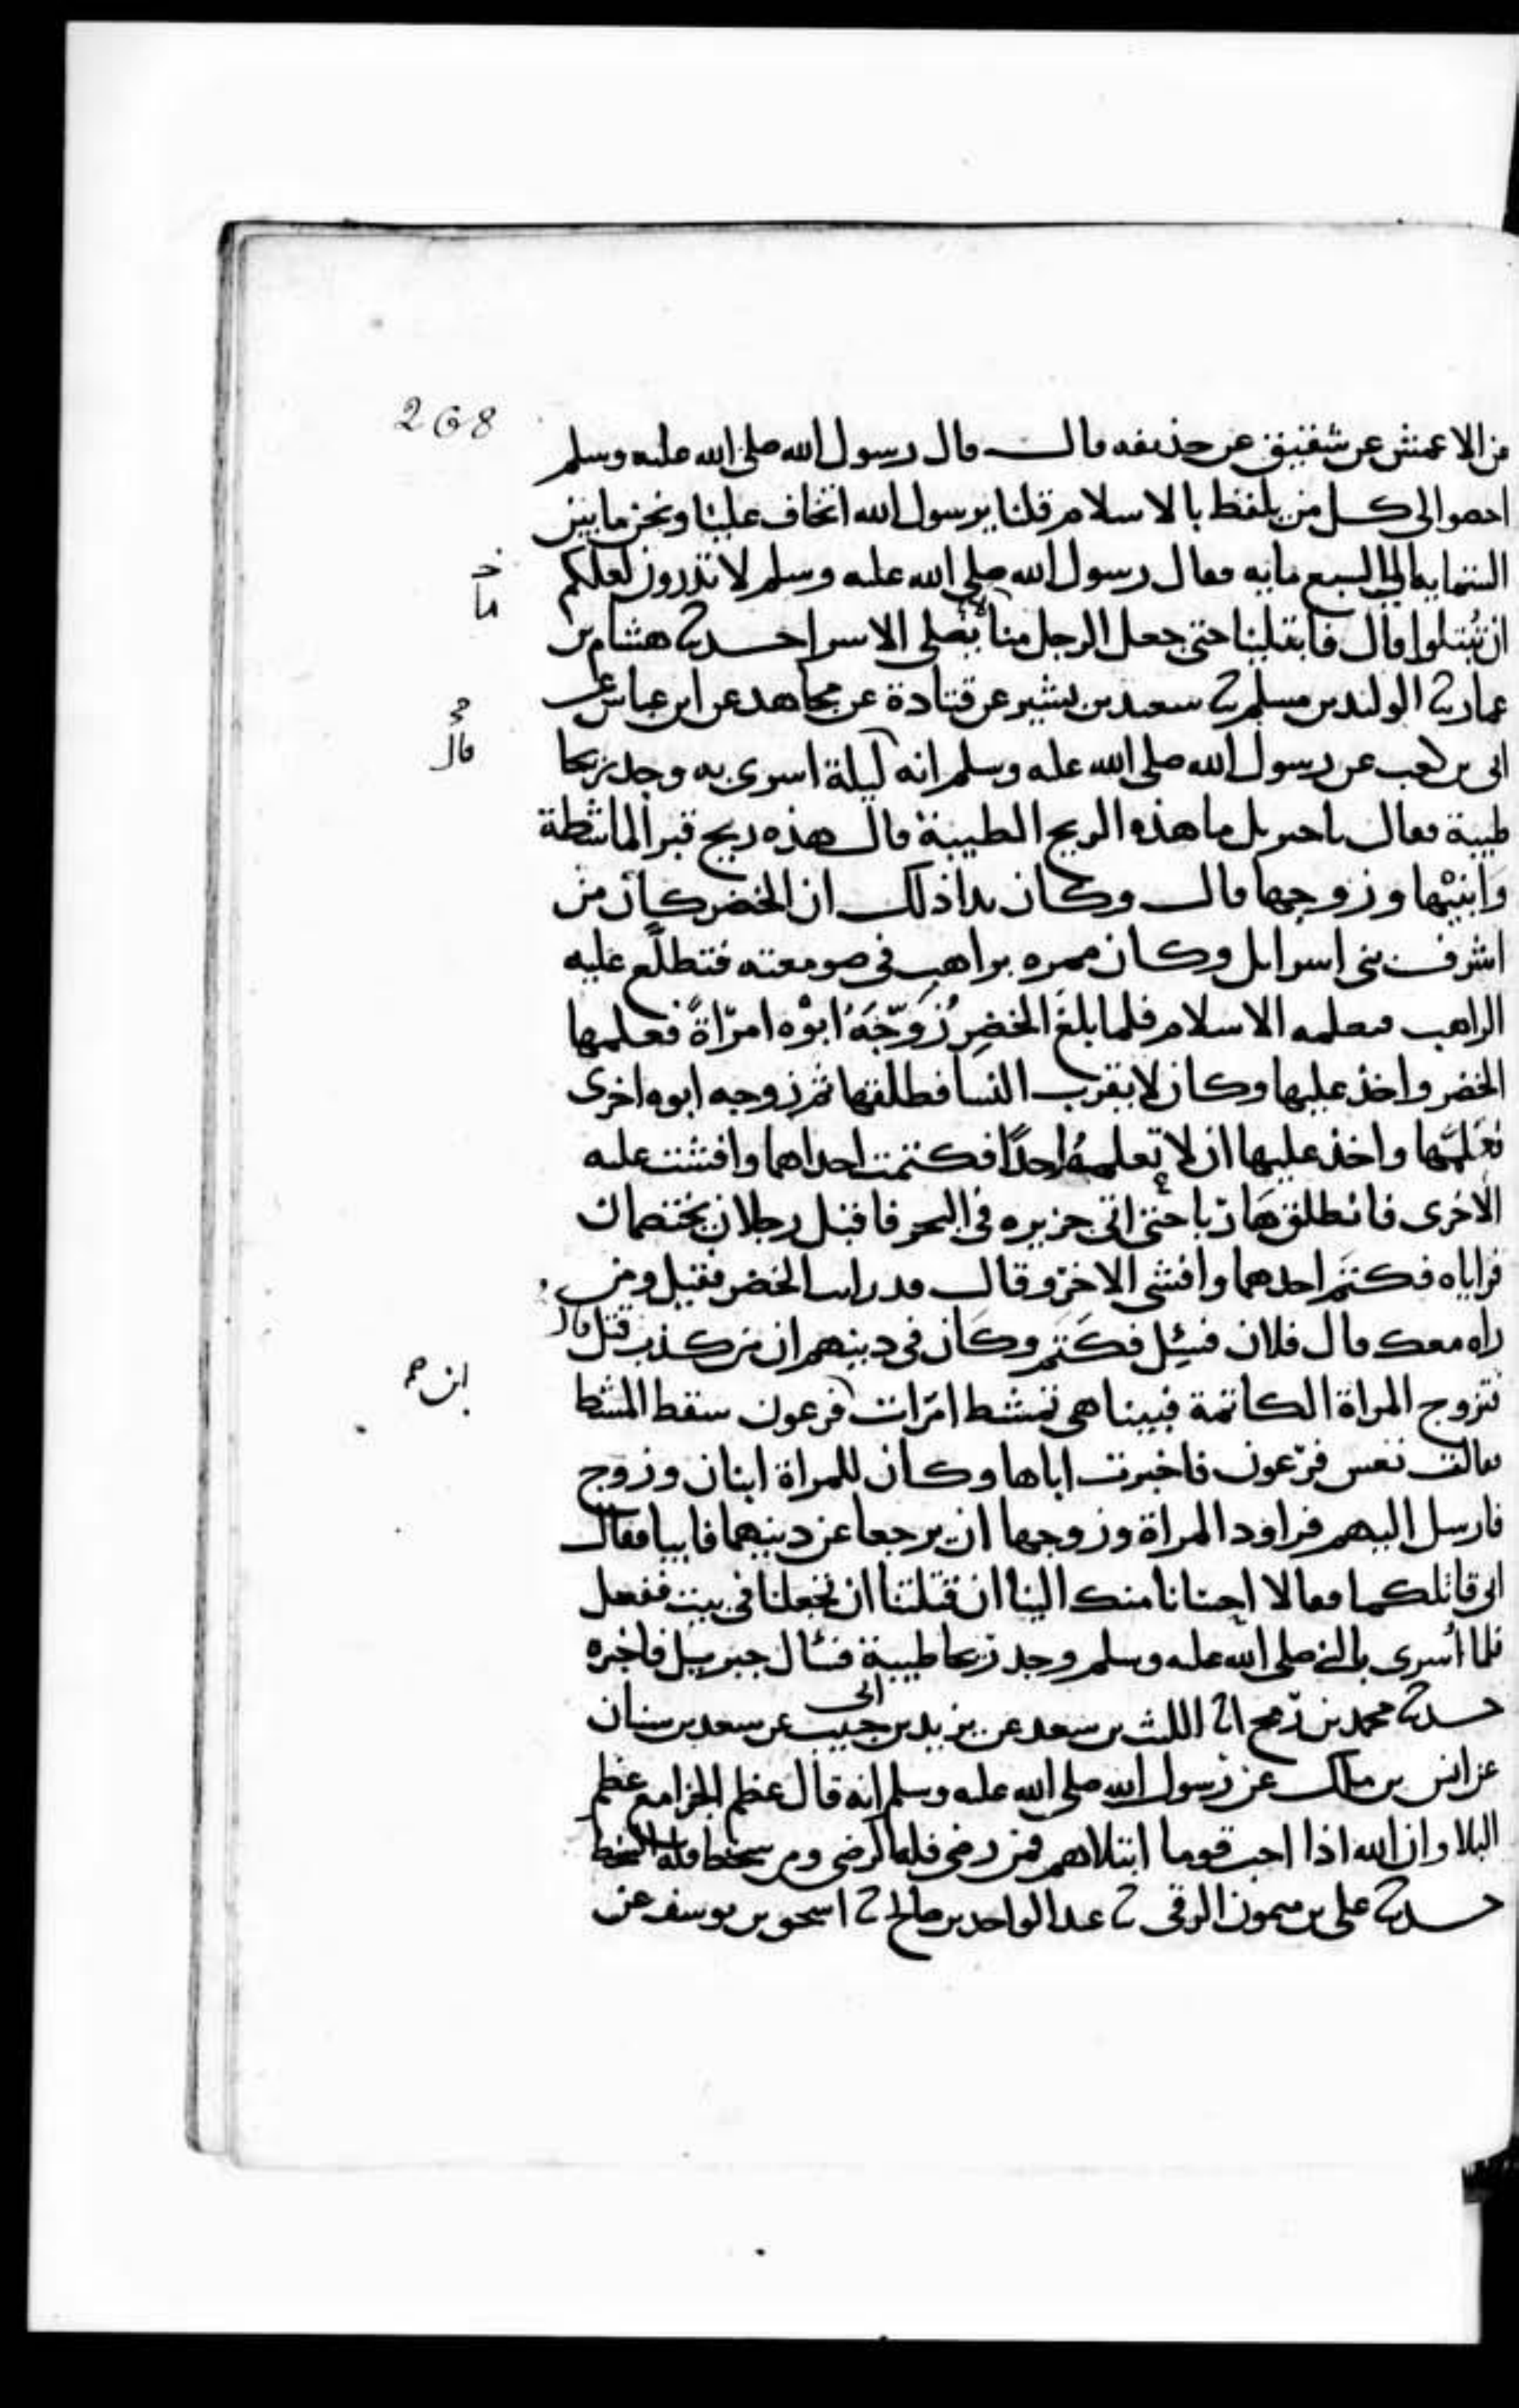 268
عن الاعمش عن شقيق عن حذيفه قال قال رسول الله صلى الله عليه وسلم
احصوا لى كل من يلفظ بالاسلام قلنا يرسول الله اتخاف علينا ونحن ما بين
الستمايه الى السبع مايه فقال رسول الله صلى الله عليه وسلم لا تدرون لعلكم
خ
ما
ان تبتلوا قال فابتلينا حتى جعل الرجل منا يصلى الا سرا حدثنا هشام بن
عمار ثنا الوليد بن مسلم ثنا سعيد بن بشير عن قتادة عن مجاهد عن ابن عباس عن
قال
ابى بن كعب عن رسول الله صلى الله عليه وسلم انه ليلة اسرى به وجد ريحا
طيبة فقال يا جبريل ما هذه الريح الطيبة قال هذه ريح قبر الماشطة
وابنيها وزوجها قال وكان بدا ذلك ان الخضر كان من
اشرف بنى اسرايل وكان ممره براهب فى صومعته فتطلع عليه
الراهب فيعلمه الاسلام فلما بلغ الخضر زوجه ابوه امراة فعلمها
الخضر واخذ عليها وكان لا يقرب النسا فطلقها ثم زوجه ابوه اخرى
فعلمها واخذ عليها ان لا تعلمه احدا فكتمت احداهما وافشت عليه
الاخرى فانطلق هاربا حتى اتى جزيره فى البحر فاقبل رجلان يختصمان
فراياه فكتم احدهما وافشى الاخر وقال قد رايت الخضر فقيل ومن
راه معك قال فلان فسئل فكتم وكان فى دينهم ان من كذب قتل قال
فتزوج المراة الكاتمة فبينا هى تمشط امرات فرعون سقط المشط
ابن
فقالت تعس فرعون فاخبرت اباها وكان للمراة ابنان وزوج
فارسل اليهم فراود المراة وزوجها ان يرجعا عن دينهما فابيا فقال
انى قاتلكما فقالا احسانا منك الينا ان قتلتنا ان تجعلنا فى بيت ففعل
فلما اسرى بالنبى صلى الله عليه وسلم وجد ريحا طيبة فسئال جبريل فاخبره
حدثنا محمد بن رمح انا الليث بن سعد عن يزيد بن ابى حبيب عن سعد بن سنان
عن انس بن ملك عن رسول الله صلى الله عليه وسلم انه قال عظم الجزا مع عظم
البلا وان الله اذا احب قوما ابتلاهم فمن رضى فله الرضى ومن سخط فله السخط
حدثنا على بن ميمون الرقى ثنا عبد الواحد بن صالح ثنا اسحق بن يوسف عن